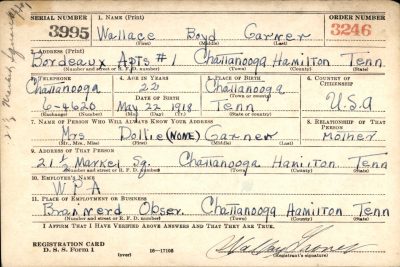 SERIAL NUMBER 1. NAME (Print) ORDER NUMBER
3995 Wallace Boyd Garner 3246
(First) (Middle) (Last)
2. ADDRESS (Print)
Bordeaux Apts #1 Chattanooga Hamilton Tenn
(Number and street or R. F. D. number) (Town) (County) (State)
3. TELEPHONE 4. AGE IN YEARS 5. PLACE OF BIRTH 6. COUNTRY OF CITIZENSHIP
Chattanooga 22 Chattanooga
DATE OF BIRTH
6-4620 May 22 1918 Tenn U.S.A
(Exchange) (Number) (Mo.) (Day) (Yr.) (State or country)
7. NAME OF PERSON WHO WILL ALWAYS KNOW YOUR ADDRESS 8. RELATIONSHIP OF THAT PERSON
Mrs Dollie (NONE) Garner Mother
(Mr., Mrs., Miss) (First) (Middle) (Last)
9. ADDRESS OF THAT PERSON
21 ½ Market Sq. Chattanooga Hamilton Tenn
(Number and street or R. F. D. number) (Town) (County) (State)
10. EMPLOYER'S NAME
WPA
11. PLACE OF EMPLOYMENT OR BUSINESS
Brainerd Obser. Chattanooga Hamilton Tenn
(Number and street or R. F. D. number) (Town) (County) (State)
I AFFIRM THAT I HAVE VERIFIED ABOVE ANSWERS AND THAT THEY ARE TRUE.
REGISTRATION CARD
D. S. S. Form 1 16-17105 (Registrant's signature)